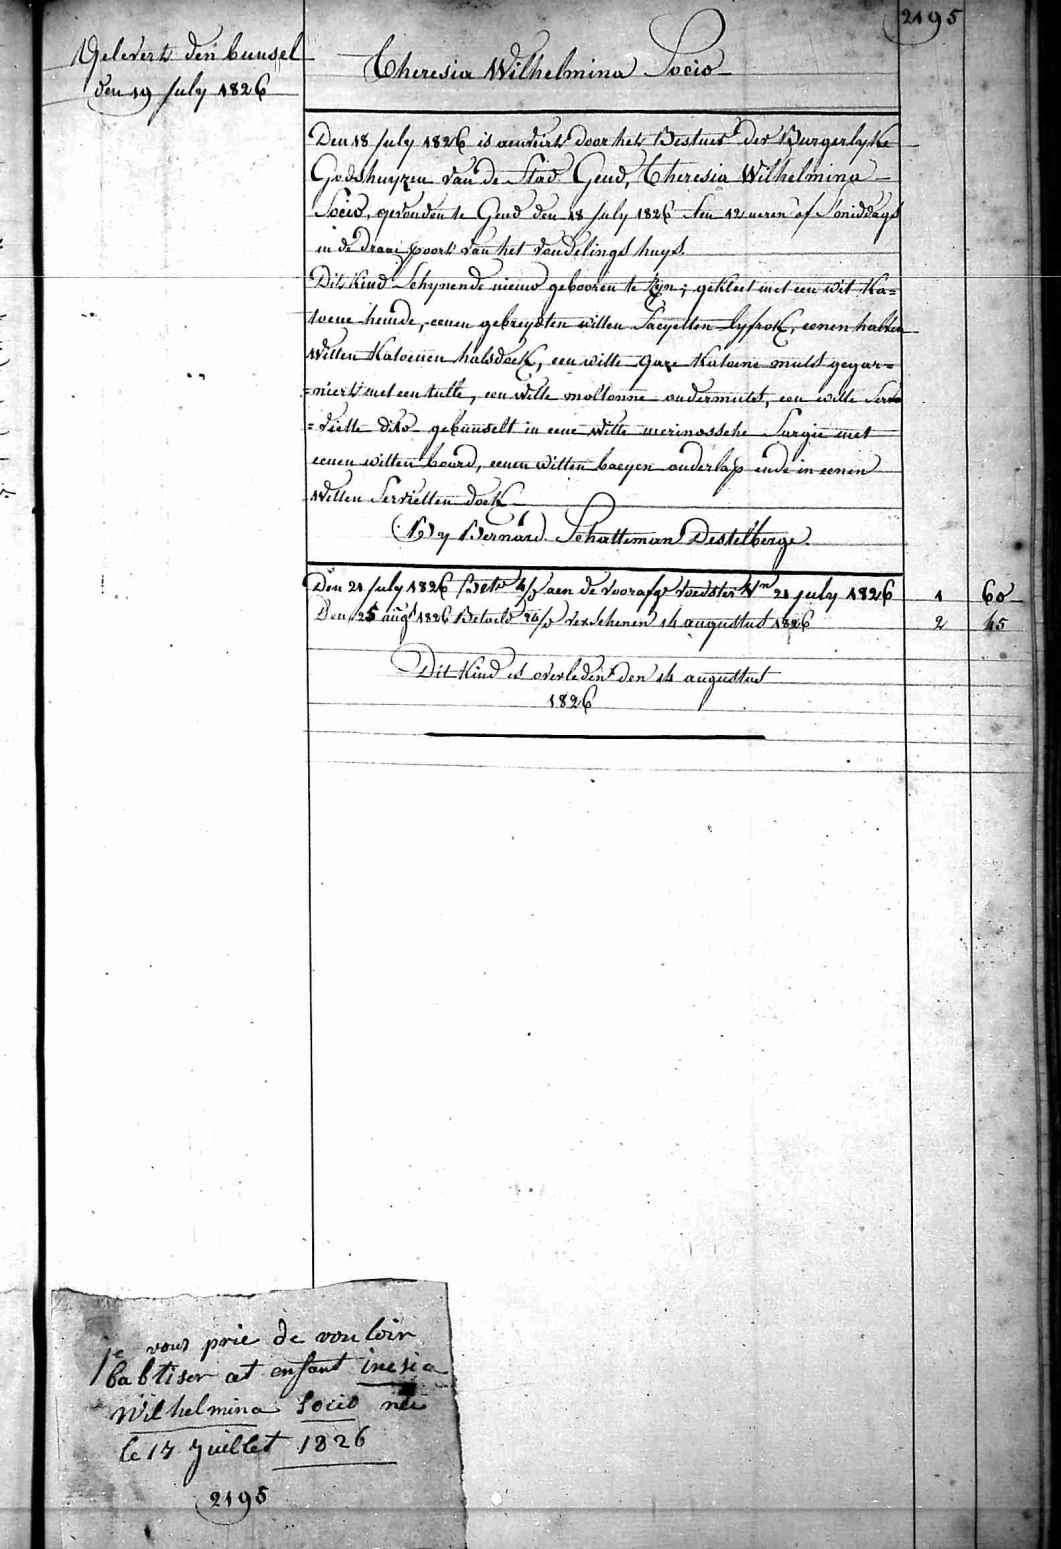 2195
Gelevert den bunsel
den 19 july 1826
Theresia Wilhelmina Socio
Den 18 july 1826 is aenveirt door het Bestuer der Burgerlyke
Godshuyzen van de Stad Gend, Theresia Wilhelmina
Socio, gevonden te Gend den 18 july 1826 ten 12 ueren of smiddags
in de draai poort van het vondelings huys.
Dit kind schynende nieuw gebooren te zyn; gekleet met een wit ka=
toene hemde, eenen gebreyden witten sacyetten lyfrok, eenen halven
witten katoenen halsdoek, een witte gaze katoene muts gegar=
=niert met een tulle, een witte moltonne ondermuts, een witte serv
=viette dito gebunselt in eene witte merinossche sargie met
eenen witten boord, eenen witten baeyen onderlap ende in eenen
witten servietten doek
By Bernard Schatteman Destelberge.
Den 21 july 1826 aen de voorafg voedster 21 july 1826 1 60
Den 25 augt 1826 Betaeld verschenen 14 augustus 1826 2 45
Dit kind is overleden den 14 augustus
1826
je vous prie de vouloir
babtiser cet enfant
Wilhelmina Socio née
le 17 juillet 1826
2195